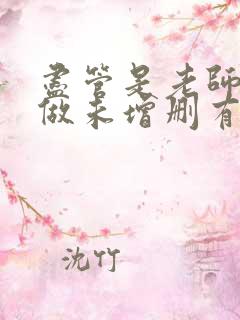 盡管是老師
做未增刪有
沈竹